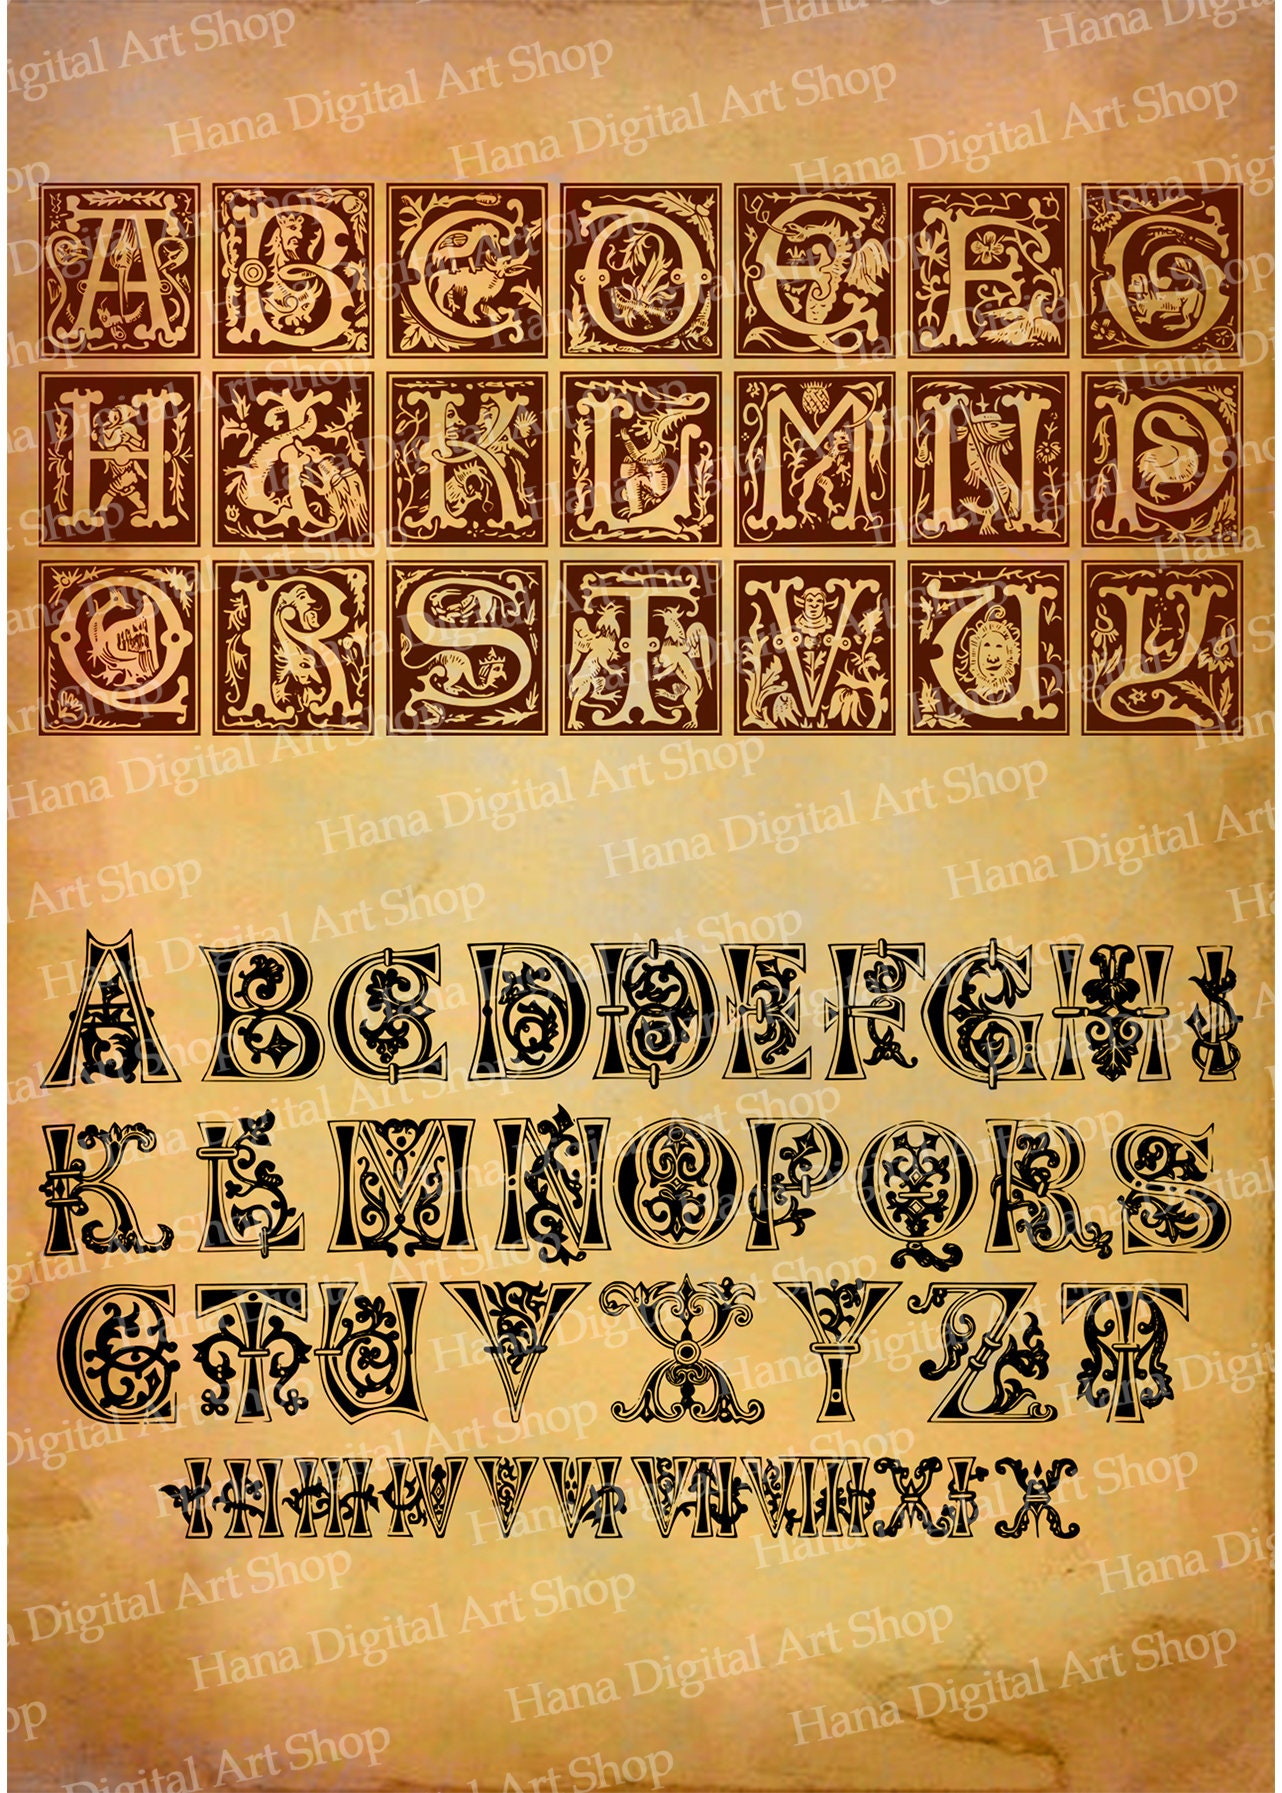 A B C D E F G
H I K L M N P
Q R S T V U Y
A B C D D E F G H I
K L M N O P Q R S
E T U V X Y Z T
I II III IV V VI VII VIII XI X
Hana Digital Art Shop